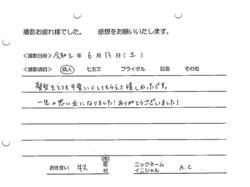 撮影お疲れ様でした。 感想をお願いいたします。
<撮影日時> 令和2年 6月13日(土)
<撮影項目> 成人 七五三 ブライダル 記念 その他
髪型をとても可愛いくしてもらえて嬉しかったです。
一生の思い出になりました!ありがとうございました!
お住まい 市 町 村 ニックネーム イニシャル A.C